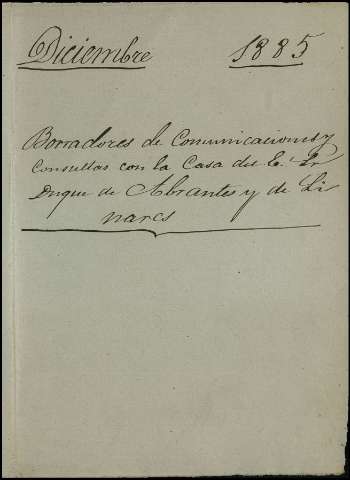 Diciembre 1885
Borradores de Comunicaciones y
consultas con la Casa del E. Sr
Duque de Abrantes y de Li
nares